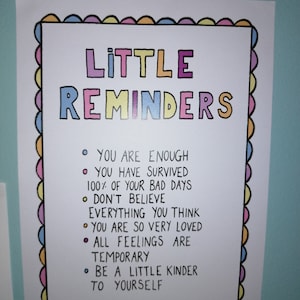 LiTTLE
REMINDERS
• YOU ARE ENOUGH
• YOU HAVE SURVIVED
100% OF YOUR BAD DAYS
• DON'T BELIEVE
EVERYTHING YOU THINK
• YOU ARE SO VERY LOVED
• ALL FEELINGS ARE
TEMPORARY
• BE A LITTLE KINDER
TO YOURSELF